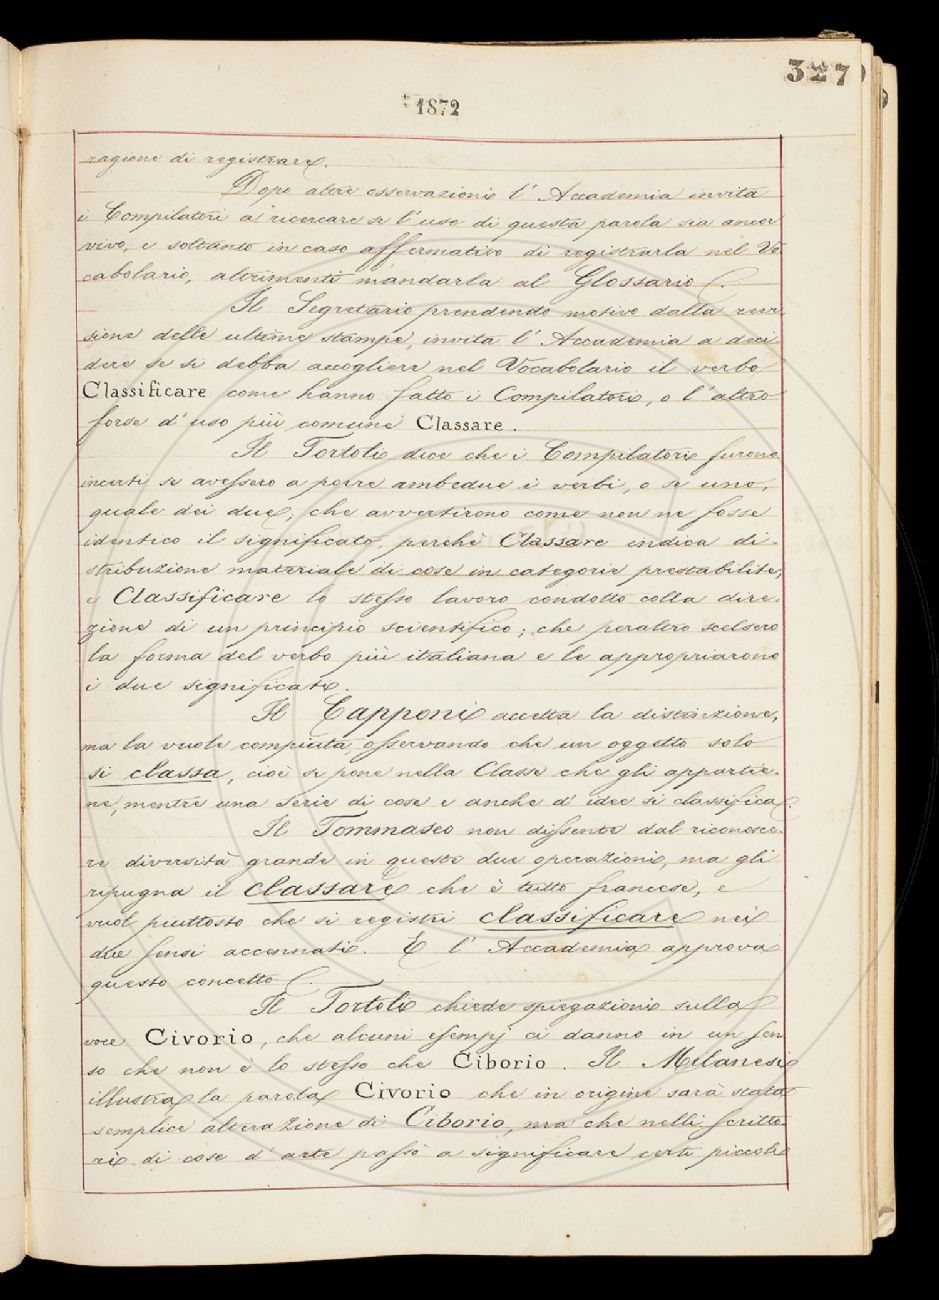 327
1872
ragione di registrare.
Dopo altre osservazioni l'Accademia invita
i Compilatori a ricercare se l'uso di questa parola sia ancor
vivo, e soltanto in caso affermativo di registrarla nel Vo-
cabolario, altrimenti mandarla al Glossario.
Il Segretario prendendo motivo dalla revi-
sione delle ultime stampe, invita l'Accademia a deci-
dere se si debba accogliere nel Vocabolario il verbo
Classificare come hanno fatto i Compilatori, o l'altro
forse d'uso più comune Classare.
Il Tortoli dice che i Compilatori furono
incerti se avessero a porre ambedue i verbi, o se uno,
quale dei due, che avvertirono come non ne fosse
identico il significato, perchè Classare indica di-
stribuzione materiale di cose in categorie prestabilite,
e Classificare lo stesso lavoro condotto colla dire-
zione di un principio scientifico; che peraltro scelsero
la forma del verbo più italiana e le appropriarono
i due significati.
Il Capponi accetta la distinzione,
ma la vuole compiuta, osservando che un oggetto solo
si classa, cioè si pone nella Classe che gli appartie-
ne, mentre una serie di cose e anche d'idee si classifica.
Il Tommaseo non dissente dal riconosce-
re diversità grande in queste due operazioni, ma gli
ripugna il classare che è tutto francese, e
vuol piuttosto che si registri classificare nei
due sensi accennati. E l'Accademia approva
questo concetto.
Il Tortoli chiede spiegazioni sulla
voce Civorio, che alcuni esempj ci danno in un sen
so che non è lo stesso che Ciborio. Il Milanesi
illustra la parola Civorio che in origine sarà stata
semplice alterazione di Ciborio, ma che nelli scritto
ri di cose d'arte passò a significare certi piccoli